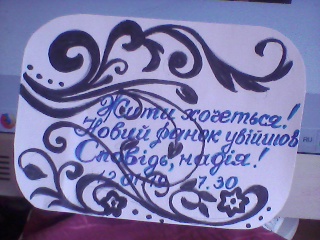 Жити хочеться!
Новий ранок увійшов
Сповідь, надія!
7.30